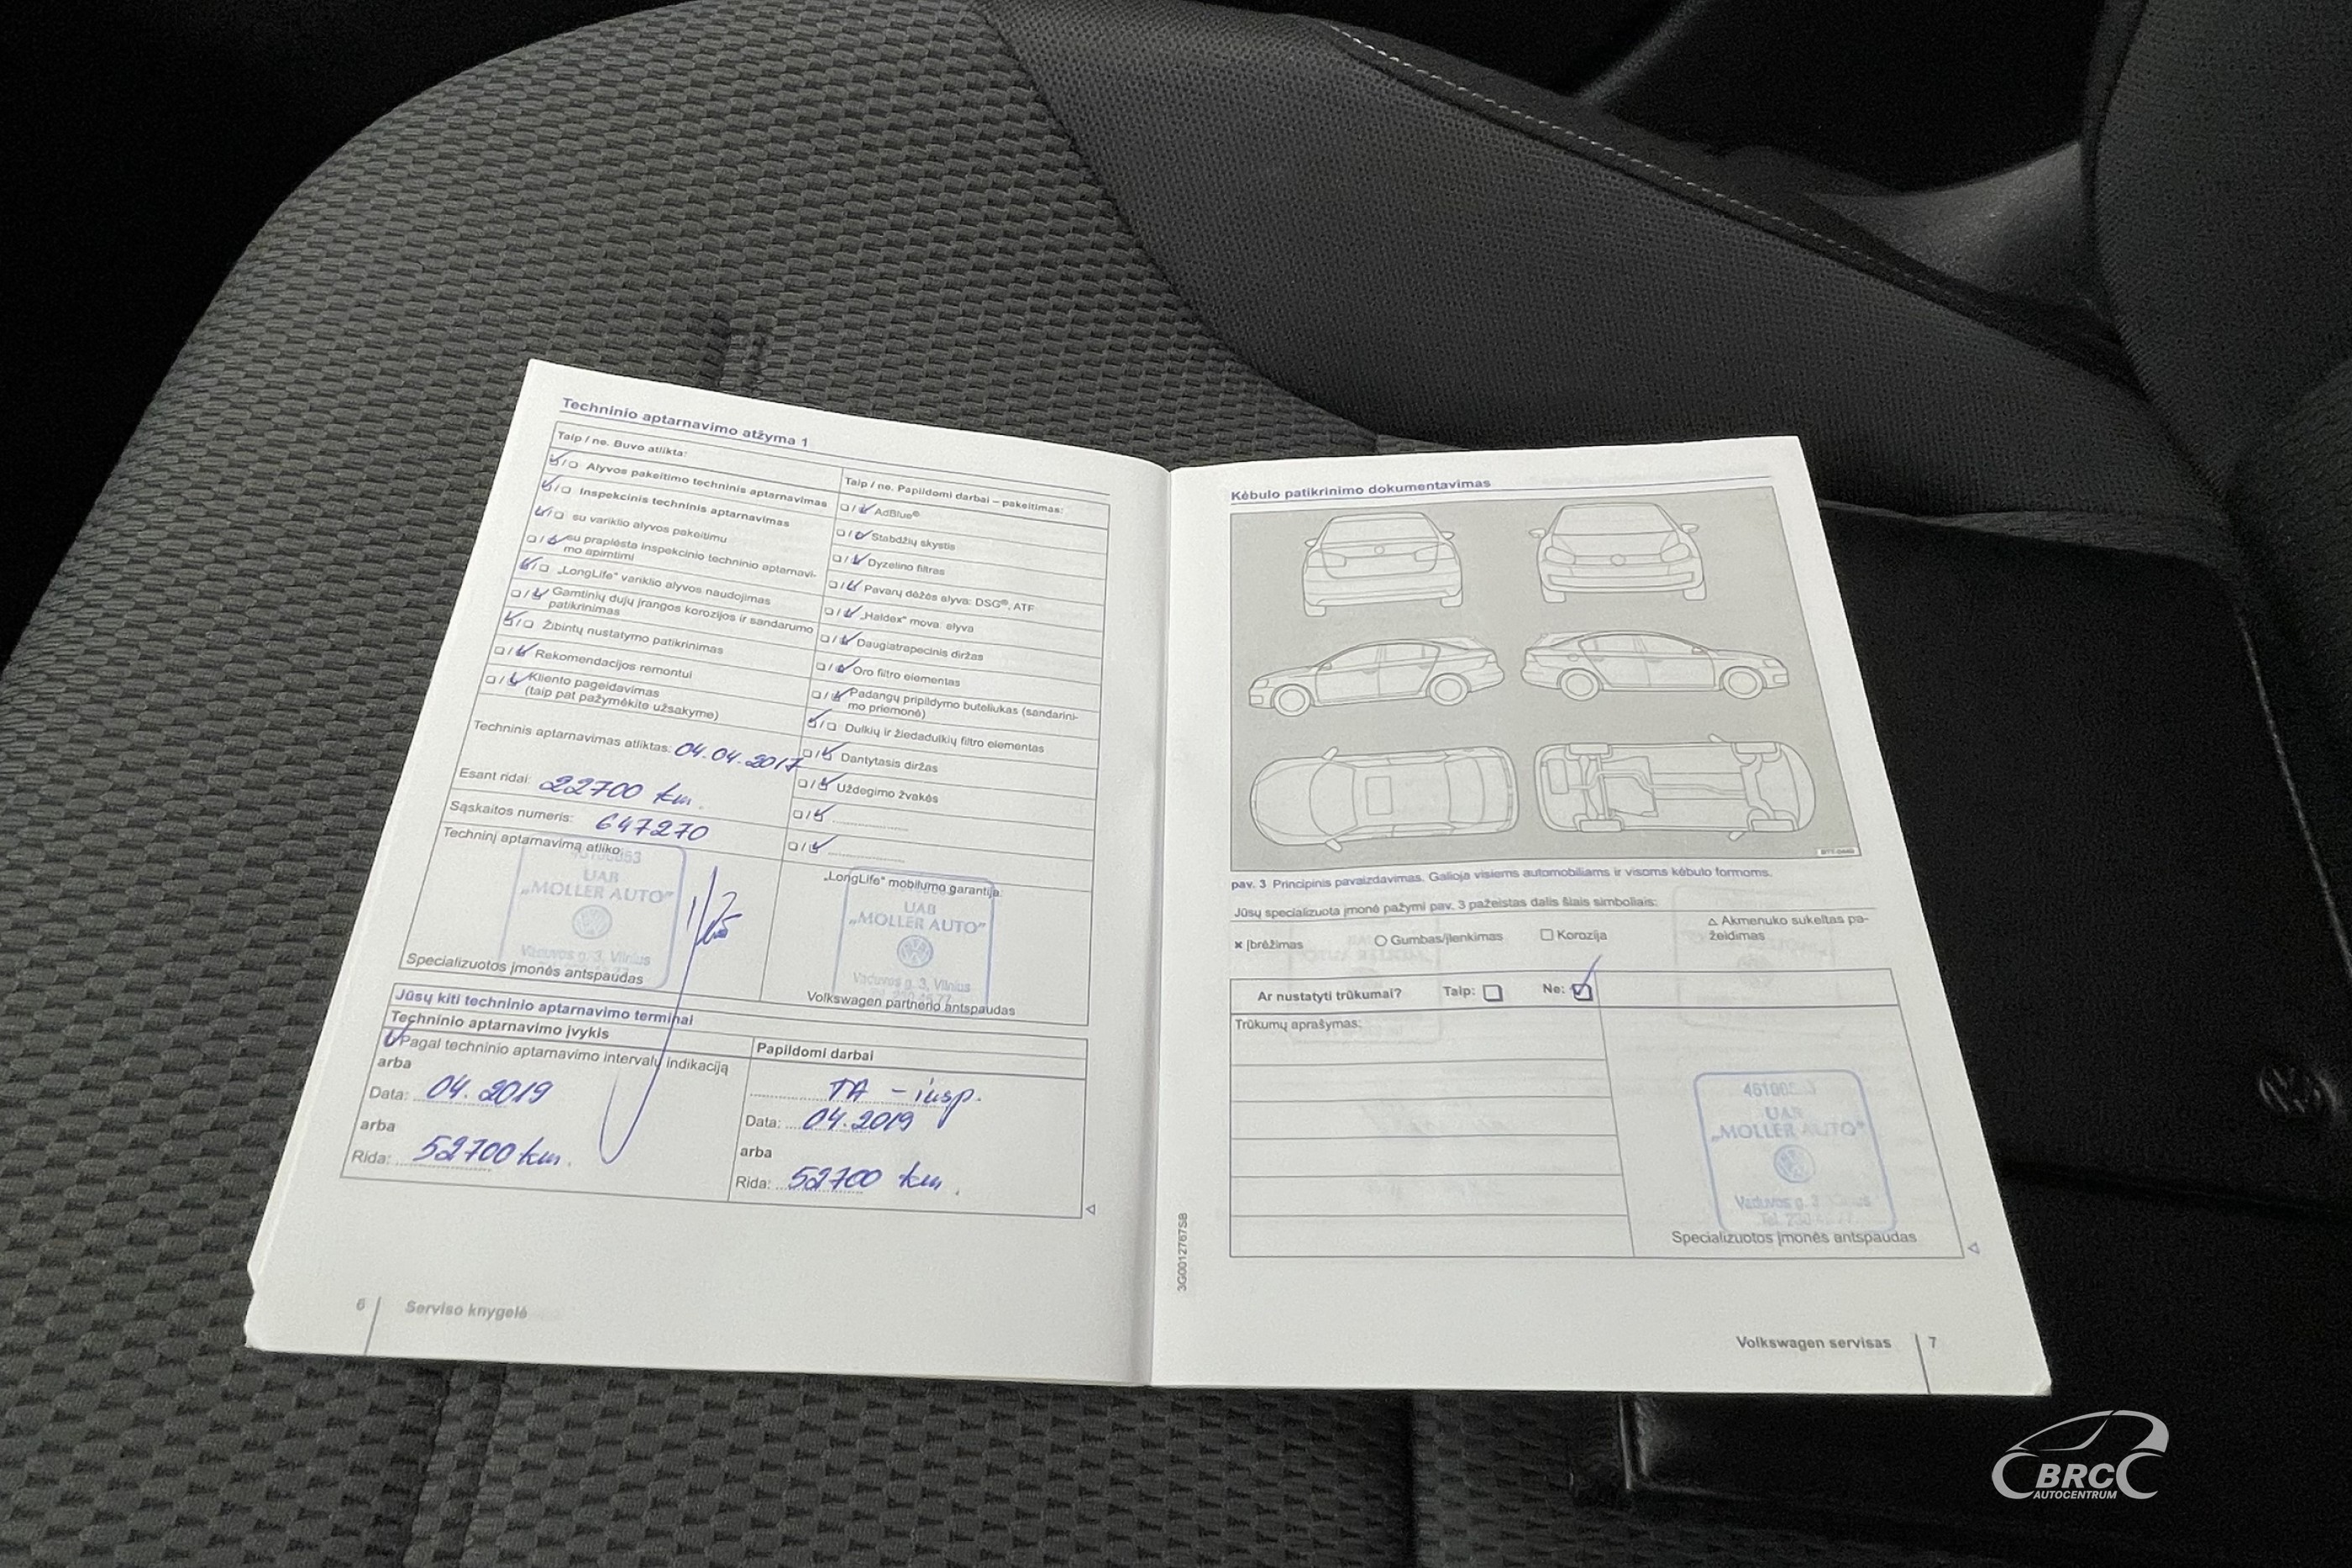 Techninio aptarnavimo atžyma 1
Taip / ne. Buvo atlikta:
Alyvos pakeitimo techninis aptarnavimas
Inspekcinis techninis aptarnavimas
su variklio alyvos pakeitimu
su praplėsta inspekcinio techninio aptarnavi-
mo apimtimi
„LongLife“ variklio alyvos naudojimas
Gamtinių dujų įrangos korozijos ir sandarumo
patikrinimas
Žibintų nustatymo patikrinimas
Rekomendacijos remontui
Kliento pageidavimas
(taip pat pažymėkite užsakyme)
Taip / ne. Papildomi darbai – pakeitimas:
AdBlue®
Stabdžių skystis
Dyzelino filtras
Pavarų dėžės alyva: DSG®, ATF
„Haldex“ mova. alyva
Daugiatrapecinis diržas
Oro filtro elementas
Padangų pripildymo buteliukas (sandarini-
mo priemonė)
Dulkių ir žiedadulkių filtro elementas
Dantytasis diržas
Uždegimo žvakės
Techninis aptarnavimas atliktas: 04.04.2017
Esant ridai: 22700 km.
Sąskaitos numeris: 647270
Techninį aptarnavimą atliko:
UAB
„MOLLER AUTO“
Vaduvos g. 3, Vilnius
Specializuotos įmonės antspaudas
„LongLife“ mobilumo garantija:
UAB
„MOLLER AUTO“
Vaduvos g. 3, Vilnius
Volkswagen partnerio antspaudas
Jūsų kiti techninio aptarnavimo terminai
Techninio aptarnavimo įvykis
Pagal techninio aptarnavimo intervalų indikaciją
arba
Data: 04.2019
arba
Rida: 52700 km.
Papildomi darbai
TA – insp.
Data: 04.2019
arba
Rida: 52700 km.
6 Serviso knygelė
Kėbulo patikrinimo dokumentavimas
pav. 3 Principinis pavaizdavimas. Galioja visiems automobiliams ir visoms kėbulo formoms.
Jūsų specializuota įmonė pažymi pav. 3 pažeistas dalis šiais simboliais:
× Įbrėžimas
○ Gumbas/įlenkimas
□ Korozija
△ Akmenuko sukeltas pa-
žeidimas
Ar nustatyti trūkumai? Taip: Ne:
Trūkumų aprašymas:
UAB
„MOLLER AUTO“
Vaduvos g. 3
Specializuotos įmonės antspaudas
3G0012767SB
Volkswagen servisas 7
BRC
AUTOCENTRUM